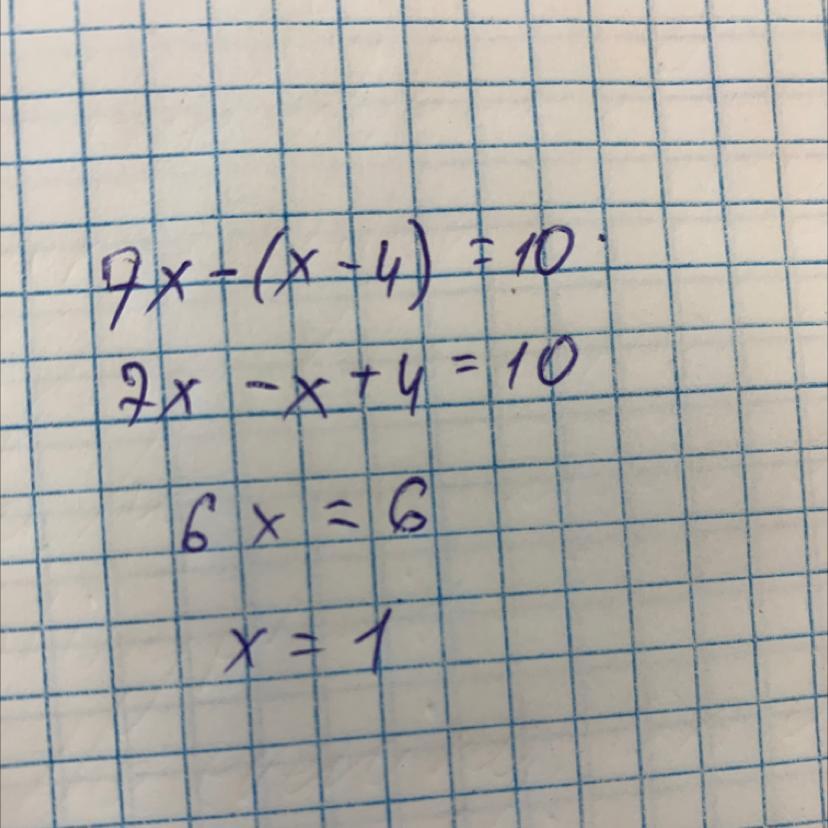 7x - (x - 4) = 10
7x - x + 4 = 10
6x = 6
x = 1